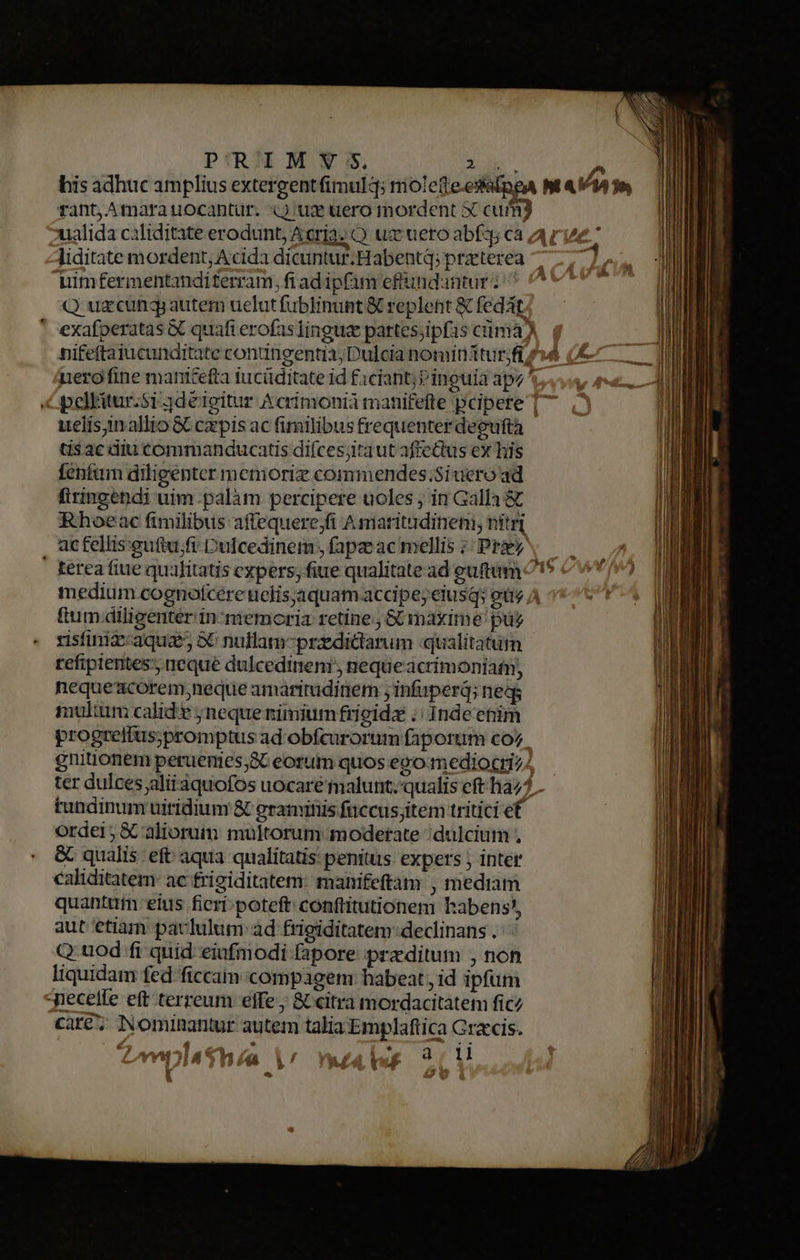 PRIMVS. 2
his adhuc amplius extergent simulq; moleste exaspe
rant, Amara uocantur. Quæ uero mordent & cum
ualida caliditate erodunt, Acria. Quæ uero absq; ca
liditate mordent, Acida dicuntur. Habentq; præterea
uim fermentandi terram, si ad ipsam effundantur:
Quæcunq; autem uelut sublinunt & replent & sedāt
exasperatas & quasi erosas linguæ partes, ipsas cū ma
nifesta iucunditate contingentia, Dulcia nominātur, si
uero sine manifesta iucūditate id faciant, Pinguia ap
pellātur. Si qdē igitur Acrimoniā manifeste pcipere
uelis, in allio & cæpis ac similibus frequenter degusta
tis ac diu commanducatis disces, ita ut affectus ex his
sensum diligenter memoriæ commendes. Si uero ad
stringendi uim palàm percipere uoles, in Galla &
Rhoe ac similibus assequere, si Amaritudinem, nitri
ac fellis gustu, si Dulcedinem, sapæ ac mellis : Præ
terea siue qualitatis expers, siue qualitate ad gustum
medium cognoscere uelis, aquam accipe, eiusq; gu
stum diligenter in memoria retine, & maxime pu
rissimæ aquæ, & nullam prædictarum qualitatum
resipientes, neque dulcedinem, neque acrimoniam,
neque acorem, neque amaritudinem, insuperq; neq;
multum calidæ, neque nimium frigidæ. Inde enim
progressus, promptus ad obscurorum saporum co
gnitionem peruenies, & eorum quos ego mediocri
ter dulces, alii aquosos uocare malunt. qualis est ha
rundinum uiridium & graminis succus, item tritici et
ordei, & aliorum multorum moderate dulcium,
& qualis est aqua qualitatis penitus expers, inter
caliditatem ac frigiditatem manifestam, mediam
quantum eius fieri potest constitutionem habens,
aut etiam paululum ad frigiditatem declinans.
Quod si quid eiusmodi sapore præditum, non
liquidam sed siccam compagem habeat, id ipsum
necesse est terreum esse, & citra mordacitatem sic
care. Nominantur autem talia Emplastica Græcis.
a ii